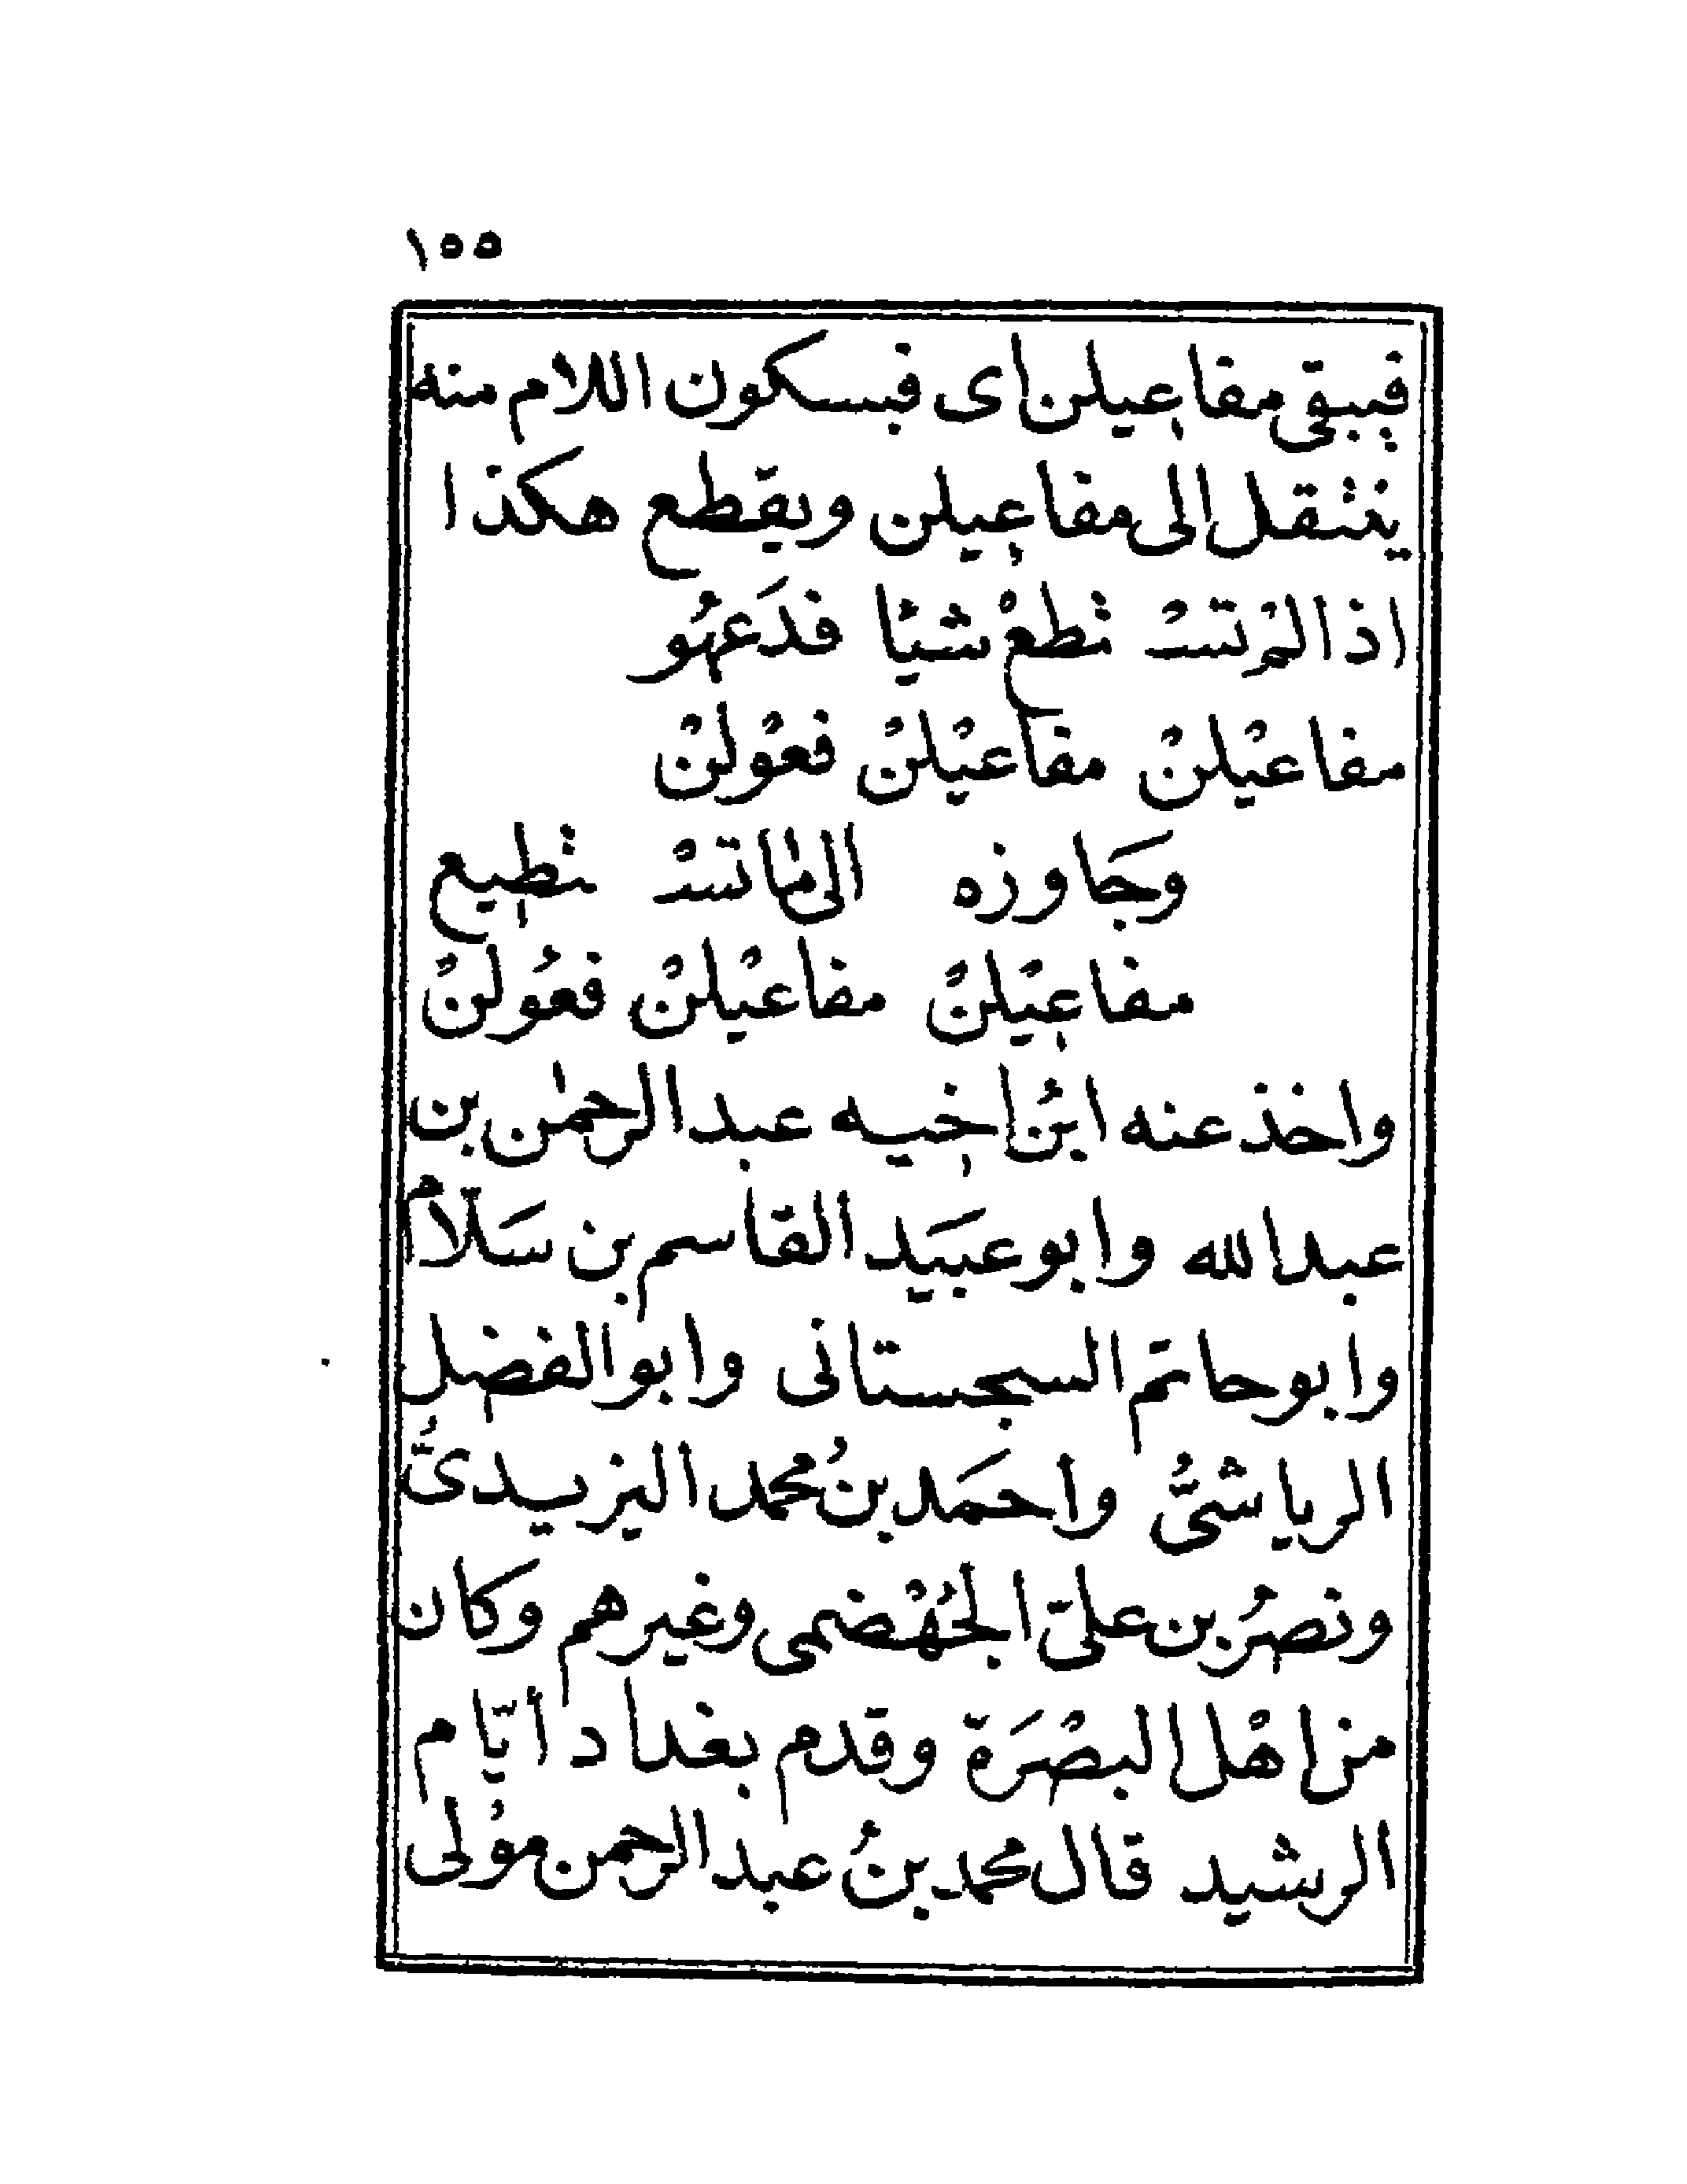 ١٥٥
فيبقى مفاعيلن اى فبسكون اللام منه
ينتقل الى مفاعيلن ويقطع هكذا
اذا لمْ تسْـ تطعْ شيئا فدَعهُو
مفاعيْلنْ مفاعيْلنْ فعوْلنْ
وَجَاوزه الى ما تسْـ تطيع
مفاعيْلنْ مفاعيْلنْ فعوُلنْ
واخذ عنه ابنُ اخيه عبد الرحمٰن بن
عبد الله وابو عبيَد القاسم بن سَلّام
وابو حاتم السجستانى وابو الفضل
الرياشىُّ وأحمَد بنُ محمد اليزيدىُّ
ونصرُ بن علىّ الجُهْضمى وغيرهم وكان
من اهْل البصْرَة وقدم بغداد أيّام
الرشيد قال محمد بنُ عبد الرحمن موْلى